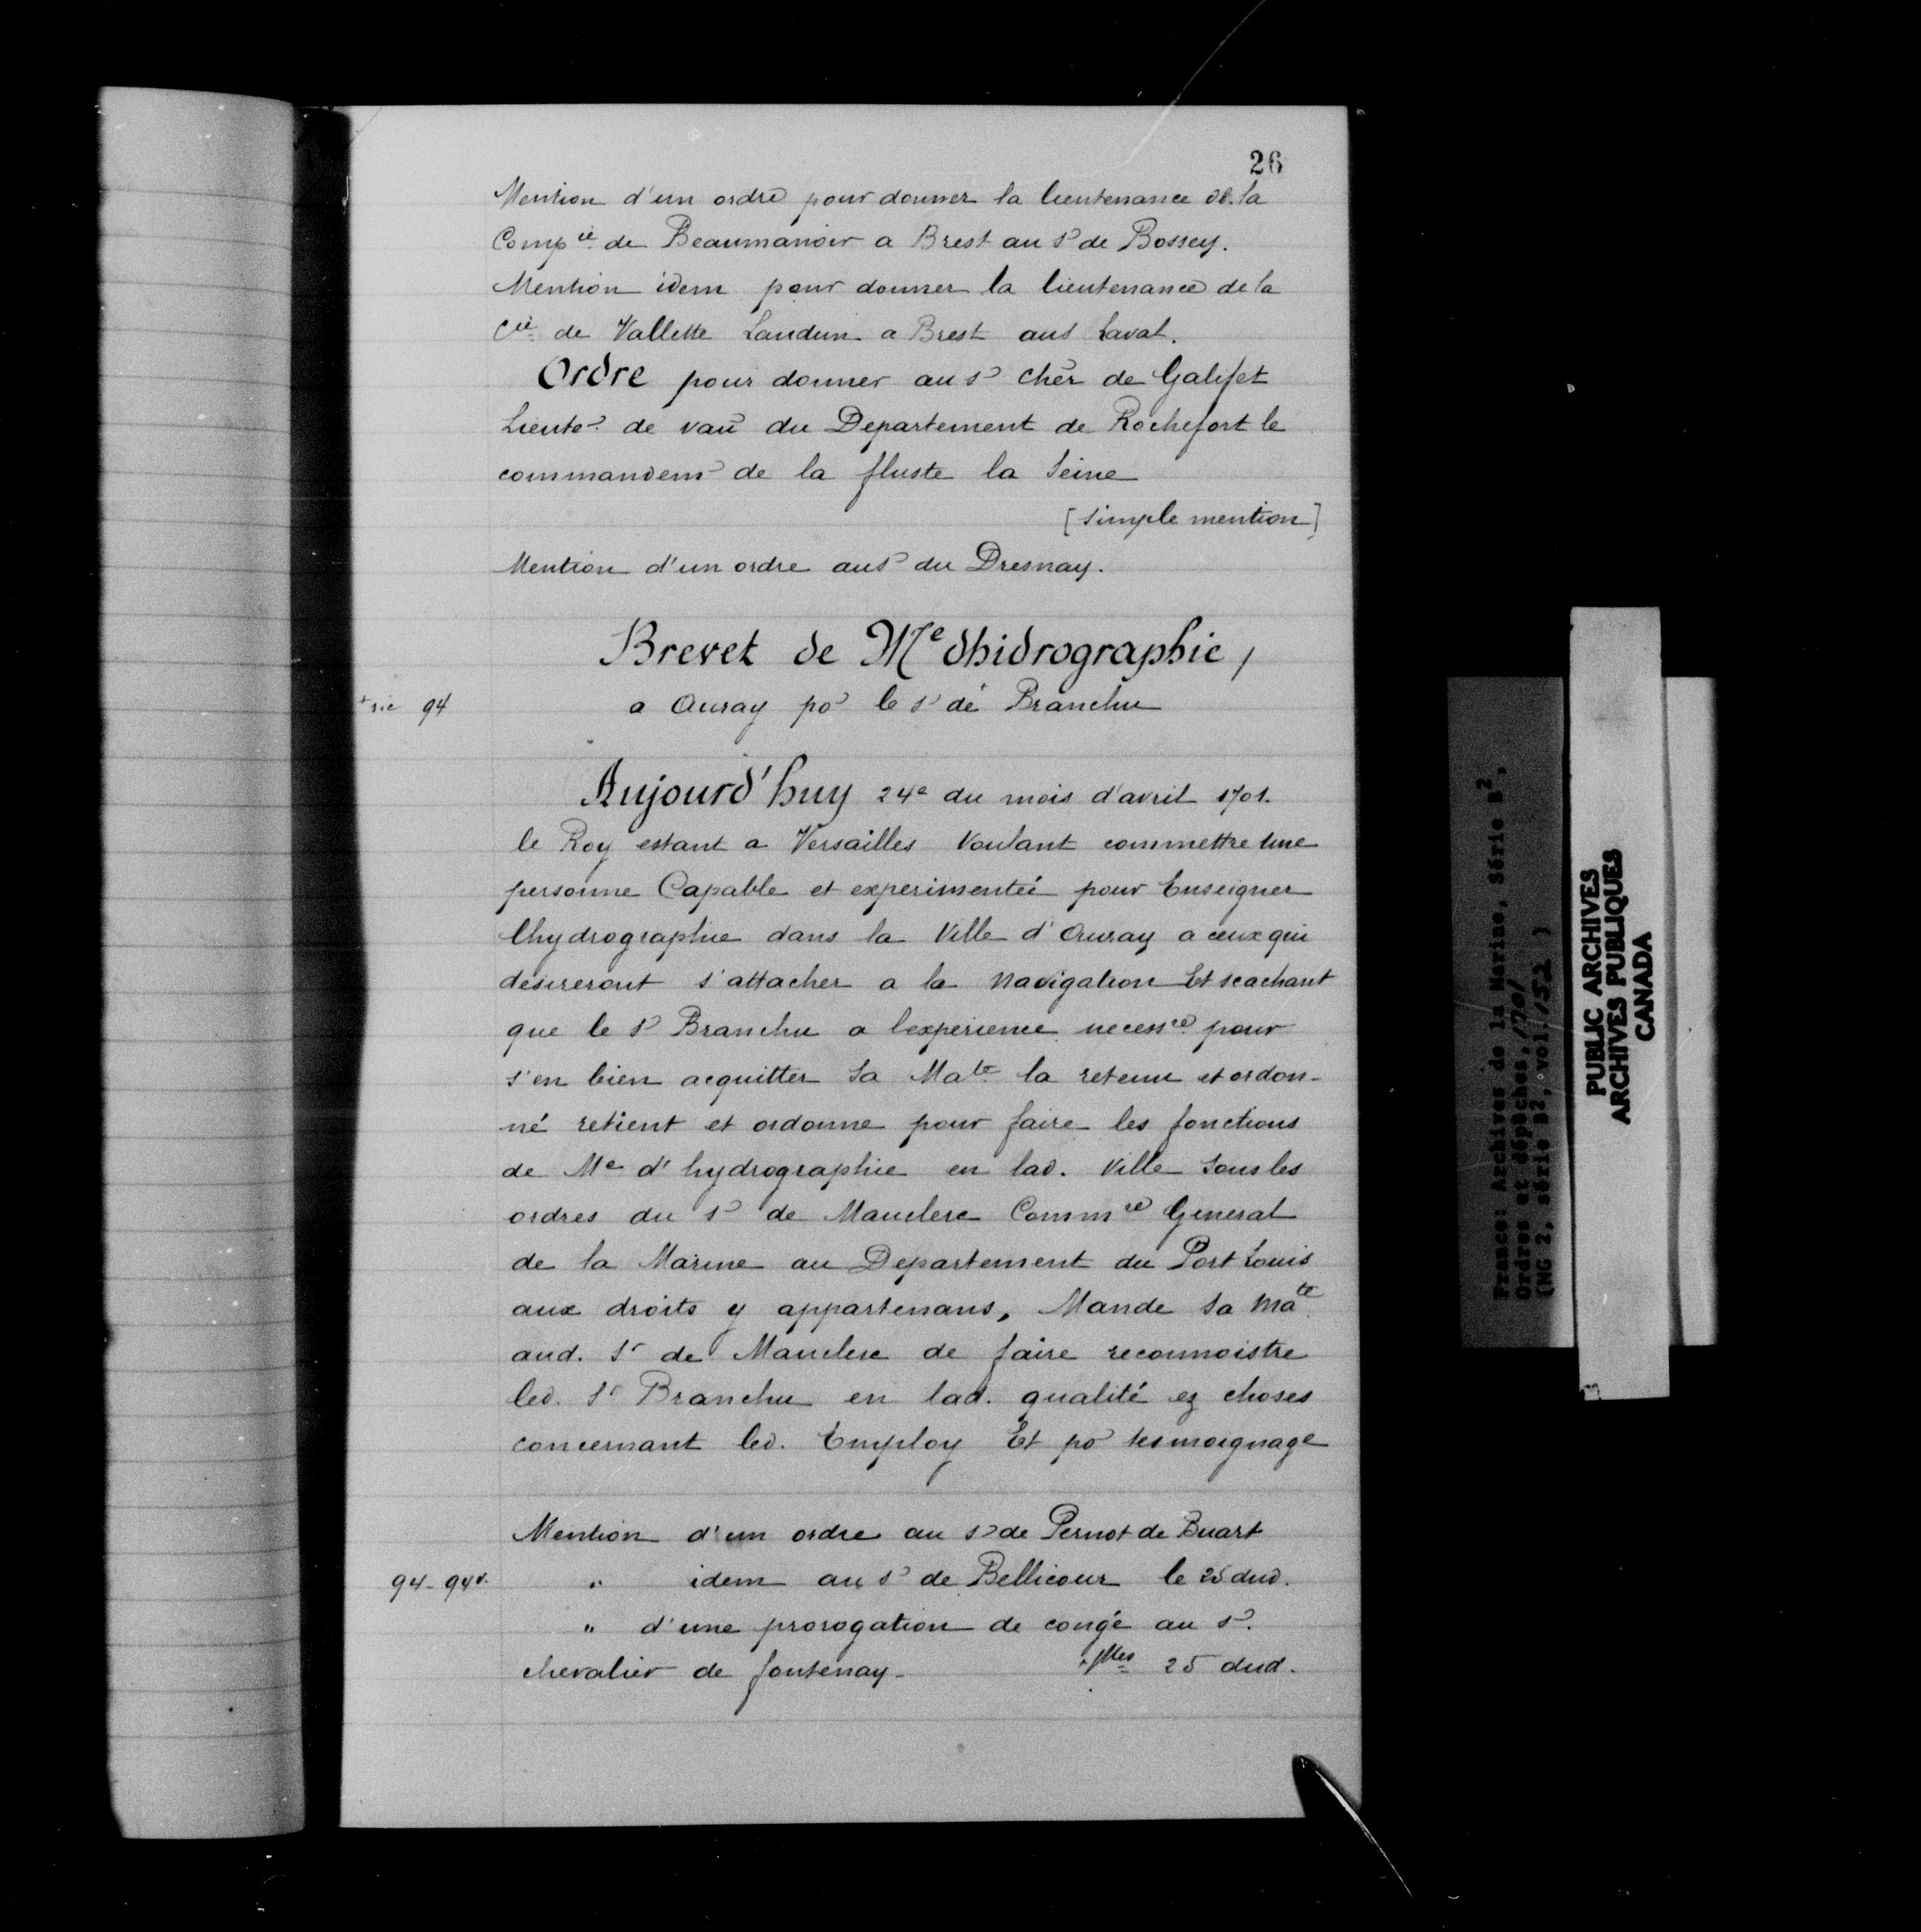 26
Mention d'un ordre pour donner la lieutenance de la
Comp.ie de Beaumanoir a Brest au Sr de Bossey.
Mention idem pour donner la lieutenance de la
Cie de Vallette Laudun a Brest au S Laval.
Ordre pour donner au sr cher de Galifet
Lieutt de vau du Departement de Rochefort le
commandemt de la fluste la Seine
[simple mention]
Mention d'un ordre au Sr du Dresnay.
Brevet de Me dhidrographie,
94 a Auray pr le sr de Branchu
Aujourd'huy 24e du mois d'avril 1701.
le Roy estant a Versailles Voulant commettre une
personne Capable et experimentée pour Enseigner
lhydrographie dans la Ville d'Auray a ceux qui
desireront s'attacher a la Navigation Et scachant
que le Sr Branchu a lexperience necessre pour
s'en bien acquitter Sa Mate la retenu et ordon-
né retient et ordonne pour faire les fonctions
de Me d'hydrographie en lad. Ville Sous les
ordres du Sr de Mauclerc Commre General
de la Marine au Departement du Port Louis
aux droits y appartenans, Mande Sa Mate
aud. Sr de Mauclerc de faire reconnoistre
led. Sr Branchu en lad. qualité ez choses
concernant led. Employ Et pr tesmoignage
Mention d'un ordre au sr de Pernot de Buart
94-94v. " idem au sr de Bellicour le 25 dud.
" d'une prorogation de congé au Sr.
chevalier de fontenay. Vlles 25 dud.
France: Archives de la Marine, Série B2,
Ordres et dépêches, 1701
(MG 2, série B2, vol. 152 )
PUBLIC ARCHIVES
ARCHIVES PUBLIQUES
CANADA